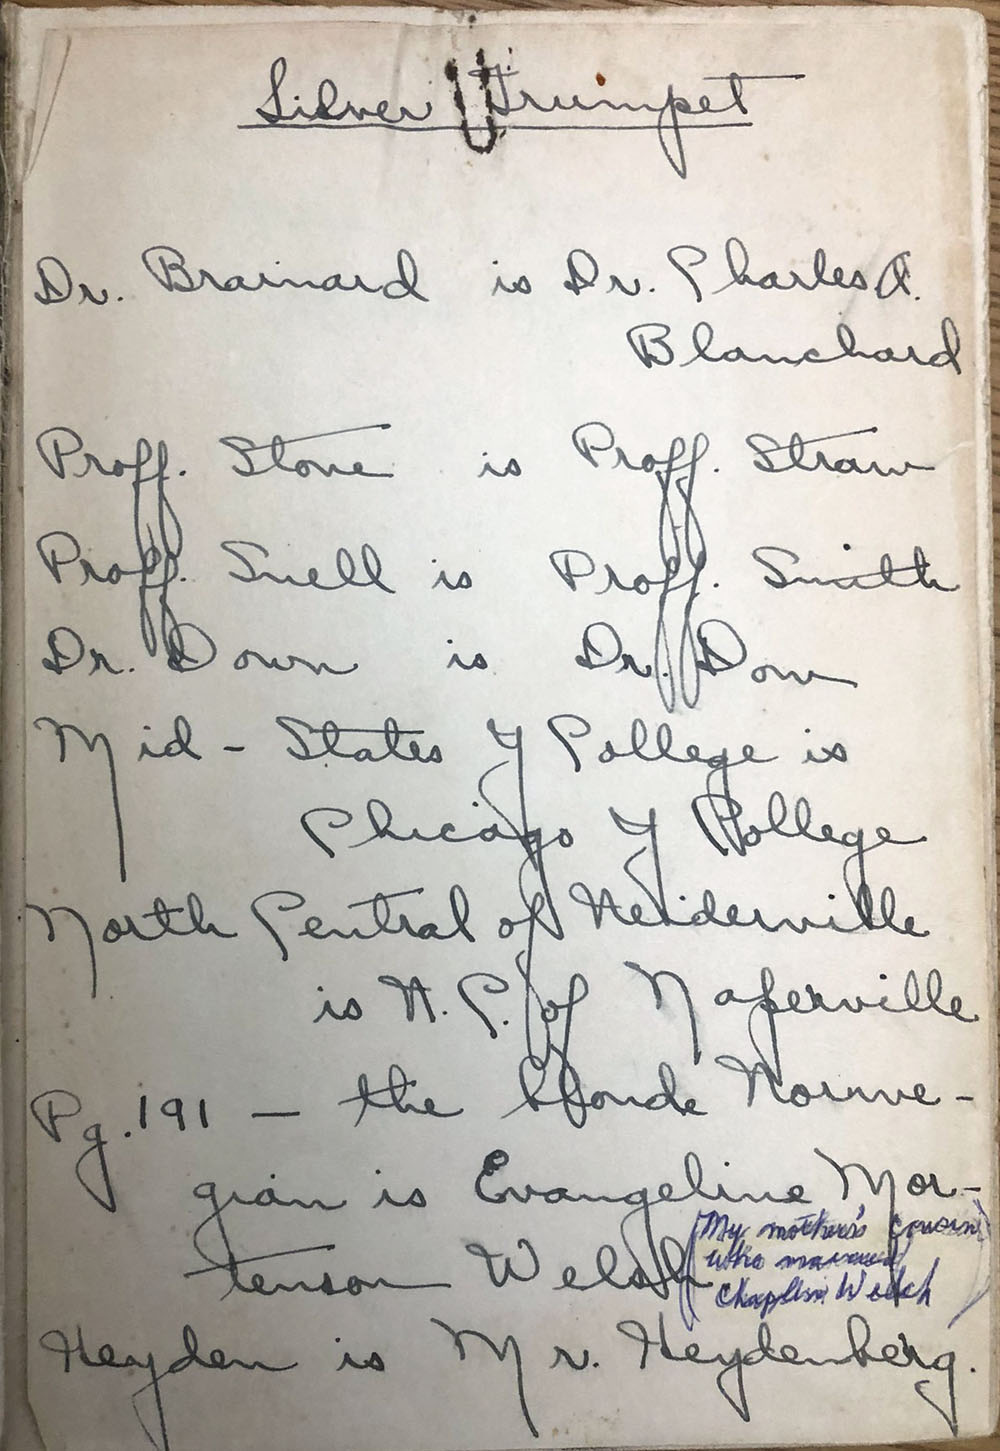 Silver Trumpet
Dr. Brainard is Dr. Charles A.
Blanchard
Proff. Stone is Proff. Straw
Proff. Snell is Proff. Smith
Dr. Down is Dr. Dow
Mid-States Y College is
Chicago Y College
North Central of Neiderville
is N.C. of Naperville
Pg. 191 — the blonde Norwe-
gian is Evangeline Mor-
tenson Welsh
(My mother's cousin
who married
Chaplin Welch)
Heyden is Mr. Heydenberg.